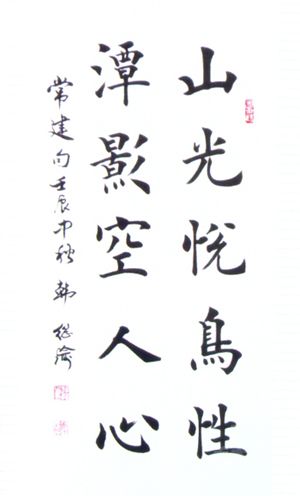 山光悦鳥性
潭影空人心
常建句壬辰中秋韩